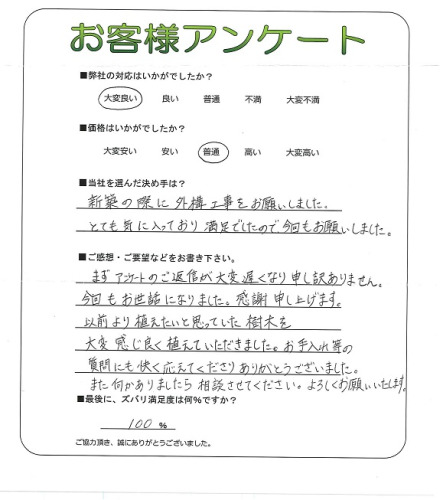 お客様アンケート
■弊社の対応はいかがでしたか？
大変良い 良い 普通 不満 大変不満
■価格はいかがでしたか？
大変安い 安い 普通 高い 大変高い
■当社を選んだ決め手は？
新築の際に外構工事をお願いしました。
とても気に入っており満足でしたので今回もお願いしました。
■ご感想・ご要望などをお書き下さい。
まずアンケートのご返信が大変遅くなり申し訳ありません。
今回もお世話になりました。感謝申し上げます。
以前より植えたいと思っていた樹木を
大変感じ良く植えていただきました。お手入れ等の
質問にも快く応えてくださりありがとうございました。
また何かありましたら相談させてください。よろしくお願いいたします。
■最後に、ズバリ満足度は何％ですか？
100 %
ご協力頂き、誠にありがとうございました。